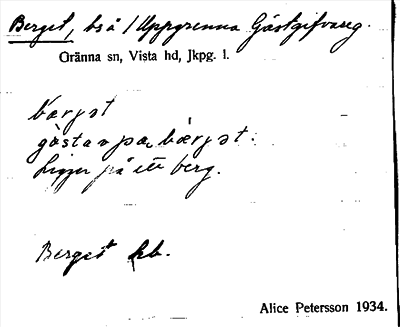 Berget, bs å 1 Uppgrenna Gästgifvareg.
Gränna sn, Vista hd, Jkpg. l.
bærjət
gåsta pa bærjət.
Ligger på ett berg.
Berget hb.
Alice Petersson 1934.